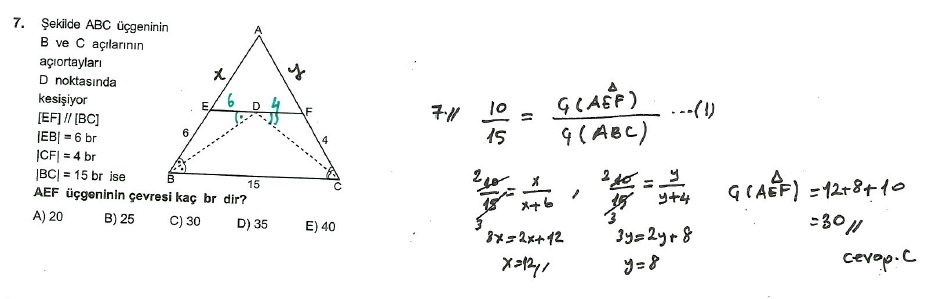 7. Şekilde ABC üçgeninin
B ve C açılarının
açıortayları
D noktasında
kesişiyor
[EF] // [BC]
|EB| = 6 br
|CF| = 4 br
|BC| = 15 br ise
AEF üçgeninin çevresi kaç br dir?
A) 20 B) 25 C) 30 D) 35 E) 40
A
x y
E 6 D 4 F
6 4
B 15 C
7.// 10/15 = Ç(AEF)/Ç(ABC) ...(1)
2 10/15 3 = x/x+6 , 2 10/15 3 = y/y+4
3x=2x+12 3y=2y+8
x=12// y=8
Ç(AEF) =12+8+10
=30//
cevap.C